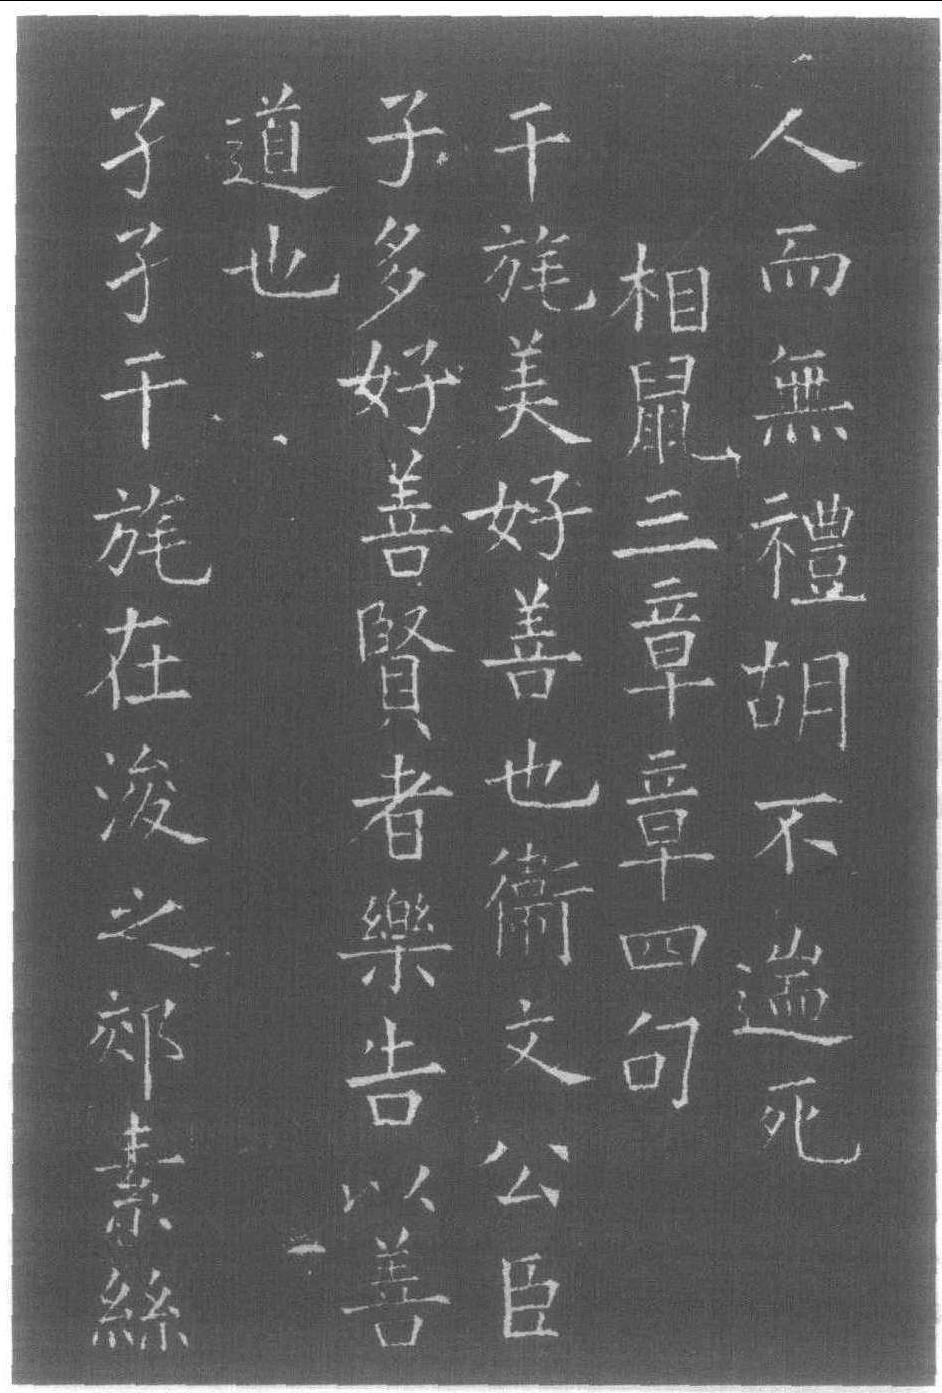 人而無禮胡不遄死
相鼠三章章四句
干旄美好善也衞文公臣
子多好善賢者樂告以善
道也
孑孑干旄在浚之郊素絲